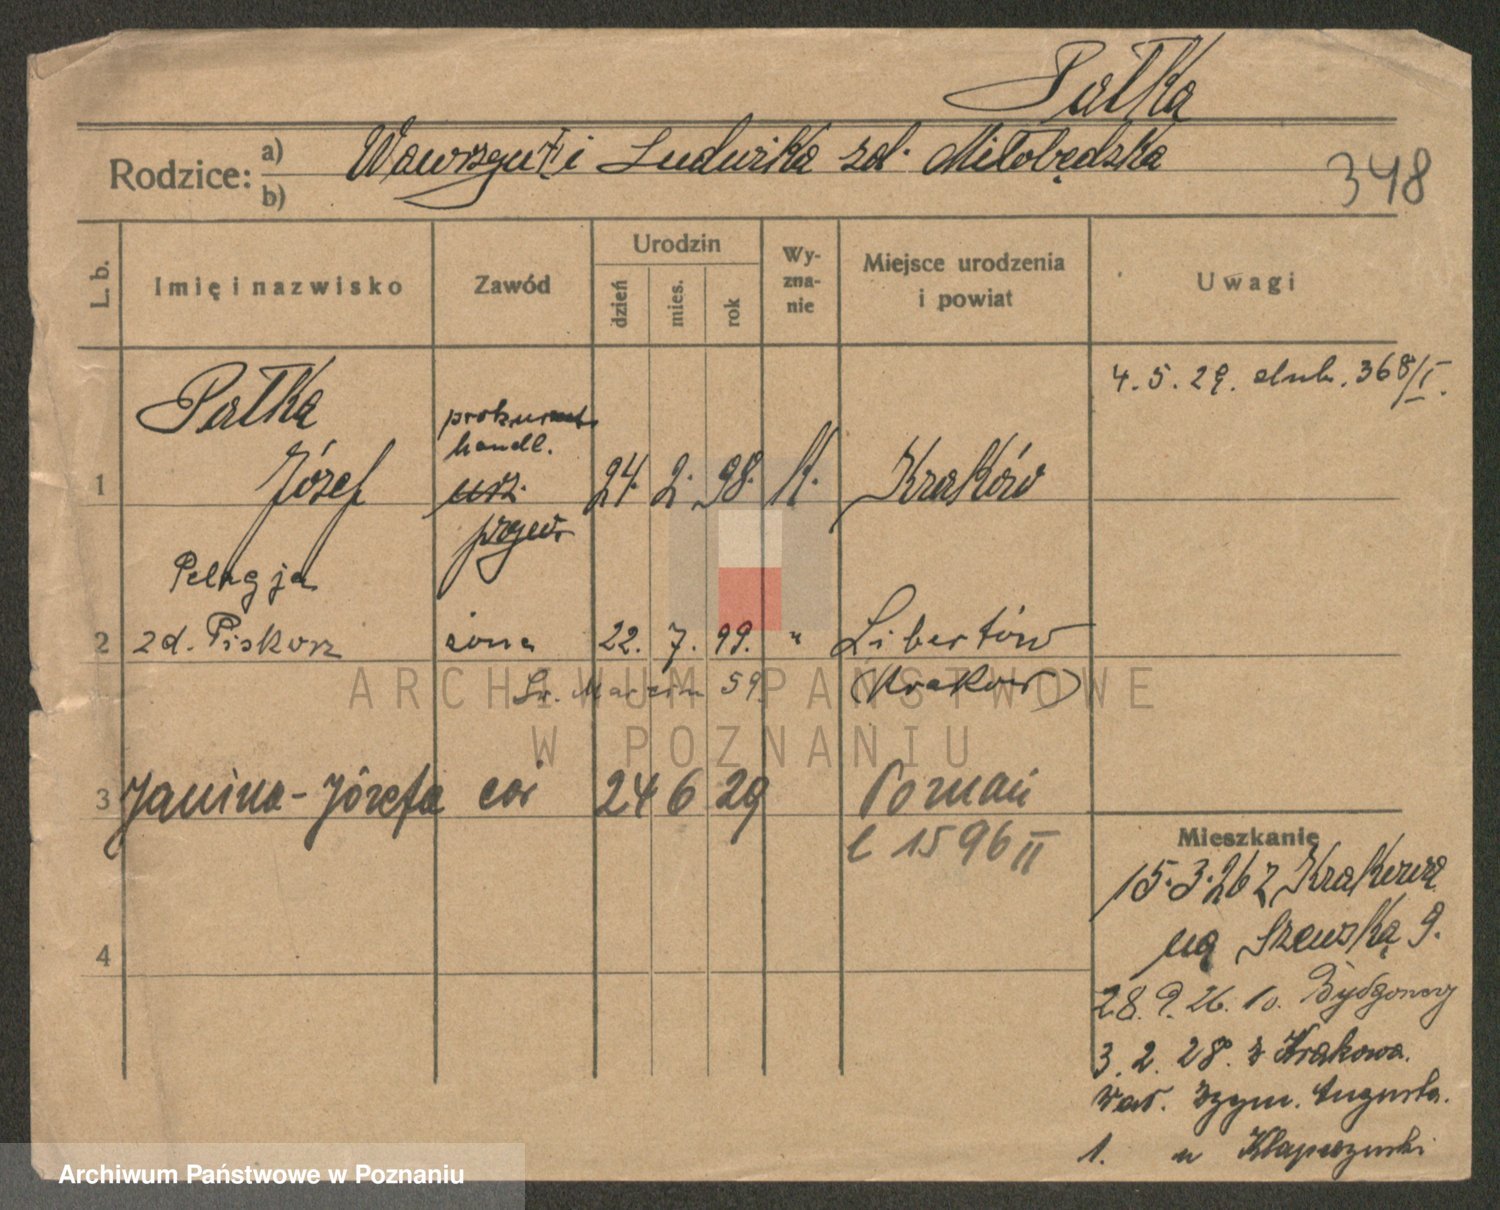 Pałka
Rodzice: a) b) Wawrzyn i Ludwika zd. Miłobędzka
348
L. b. Imię i nazwisko Zawód Urodzin dzień mies. rok Wy-zna-nie Miejsce urodzenia i powiat Uwagi
4. 5. 29. 368/I.
Pałka
prokurent
handl.
1 Józef urz. 24. 2. 98. k. Kraków
Pelagja
2 zd. Piskorz żona 22. 7. 99. " Libertów
Św. Marcin 59. (Kraków)
ARCHIWUM PAŃSTWOWE
W POZNANIU
3 Janina-Józefa cór 24 6 29 Poznań
l 1596 II
Mieszkanie
15.3.26 z Krakowa
na Szewską 9.
4
28. 9. 26. do Bydgoszczy
3. 2. 28. z Krakowa.
Zygm. Augusta.
1. u
Archiwum Państwowe w Poznaniu